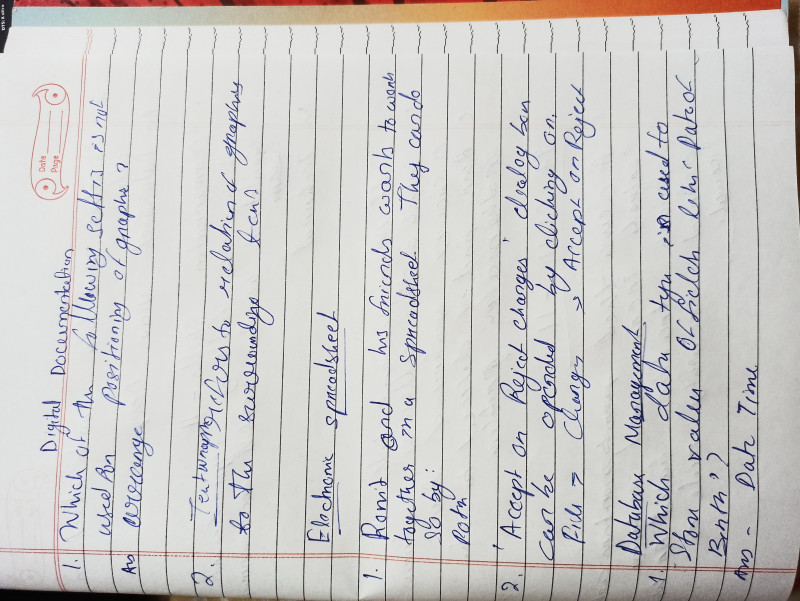 Date
Page
Digital Documentation
1. Which of the following settis is not
used for positioning of graphe?
Ans
2. Textwrapping refers to relation of graphics
to the surrounding text
Electronic spreadsheet
1. Romit and his friends wants to work
together in a spreadsheet. They can do
so by:
Both
2. 'Accept or Reject changes' dialog box
can be opended by clicking on.
Files > Changes > Accept or Reject
Database Management
1. Which data type is used to
Store value of fields like: Date of
Birth??
Ans - Date Time